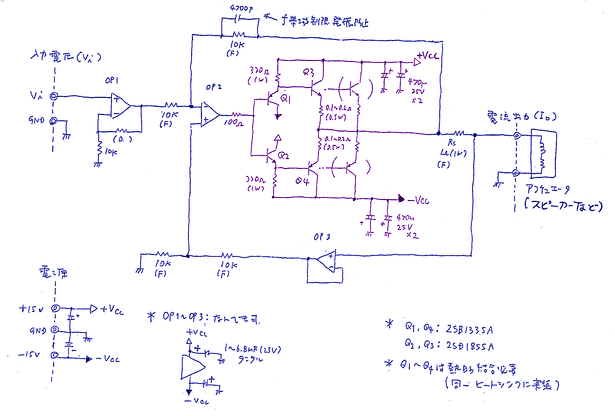 4700P
f帯域制限発振防止
10K
(F)
入力電圧(Vi)
Vi
GND
OP1
(0.)
10K
10K
(F)
OP2
100Ω
330Ω
(1W)
Q1
Q3
Q2
330Ω
(1W)
Q4
0.1~0.2Ω
(0.5W)
0.1~0.2Ω
(0.5W)
+Vcc
470μ
25V
×2
-Vcc
470μ
25V
×2
Rs
1Ω(1W)
(F)
電流出力(Io)
アクチュエータ
(スピーカーなど)
OP3
10K
(F)
10K
(F)
電源
+15V
+Vcc
GND
-15V
-Vcc
* OP1~OP3:なんでもです.
+Vcc
1~6.8μF(25V)
タンタル
-Vcc
* Q1, Q4: 2SB1335A
Q2, Q3: 2SB1855A
* Q1~Q4は熱的結合必要
(同一ヒートシンクに実装)